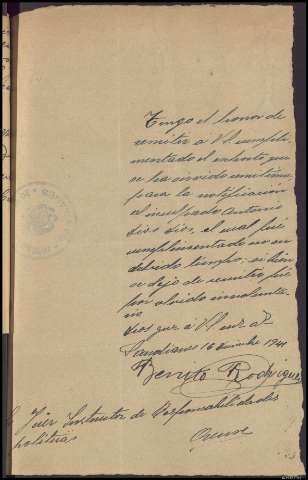 Tengo el honor de
remitir a V. cumpli-
mentado el exhorto que
se ha servido remitirme
para la notificación
al inculpado Antonio
el cual fué
cumplimentado en su
debido tiempo; si bien
se dejo de remitir fué
por olvido involunta-
rio
Dios gue a V. m. a.
Sandianes 16 1941
Benito Rodriguez
Juez Instructor de Responsabilidades
políticas
Orense